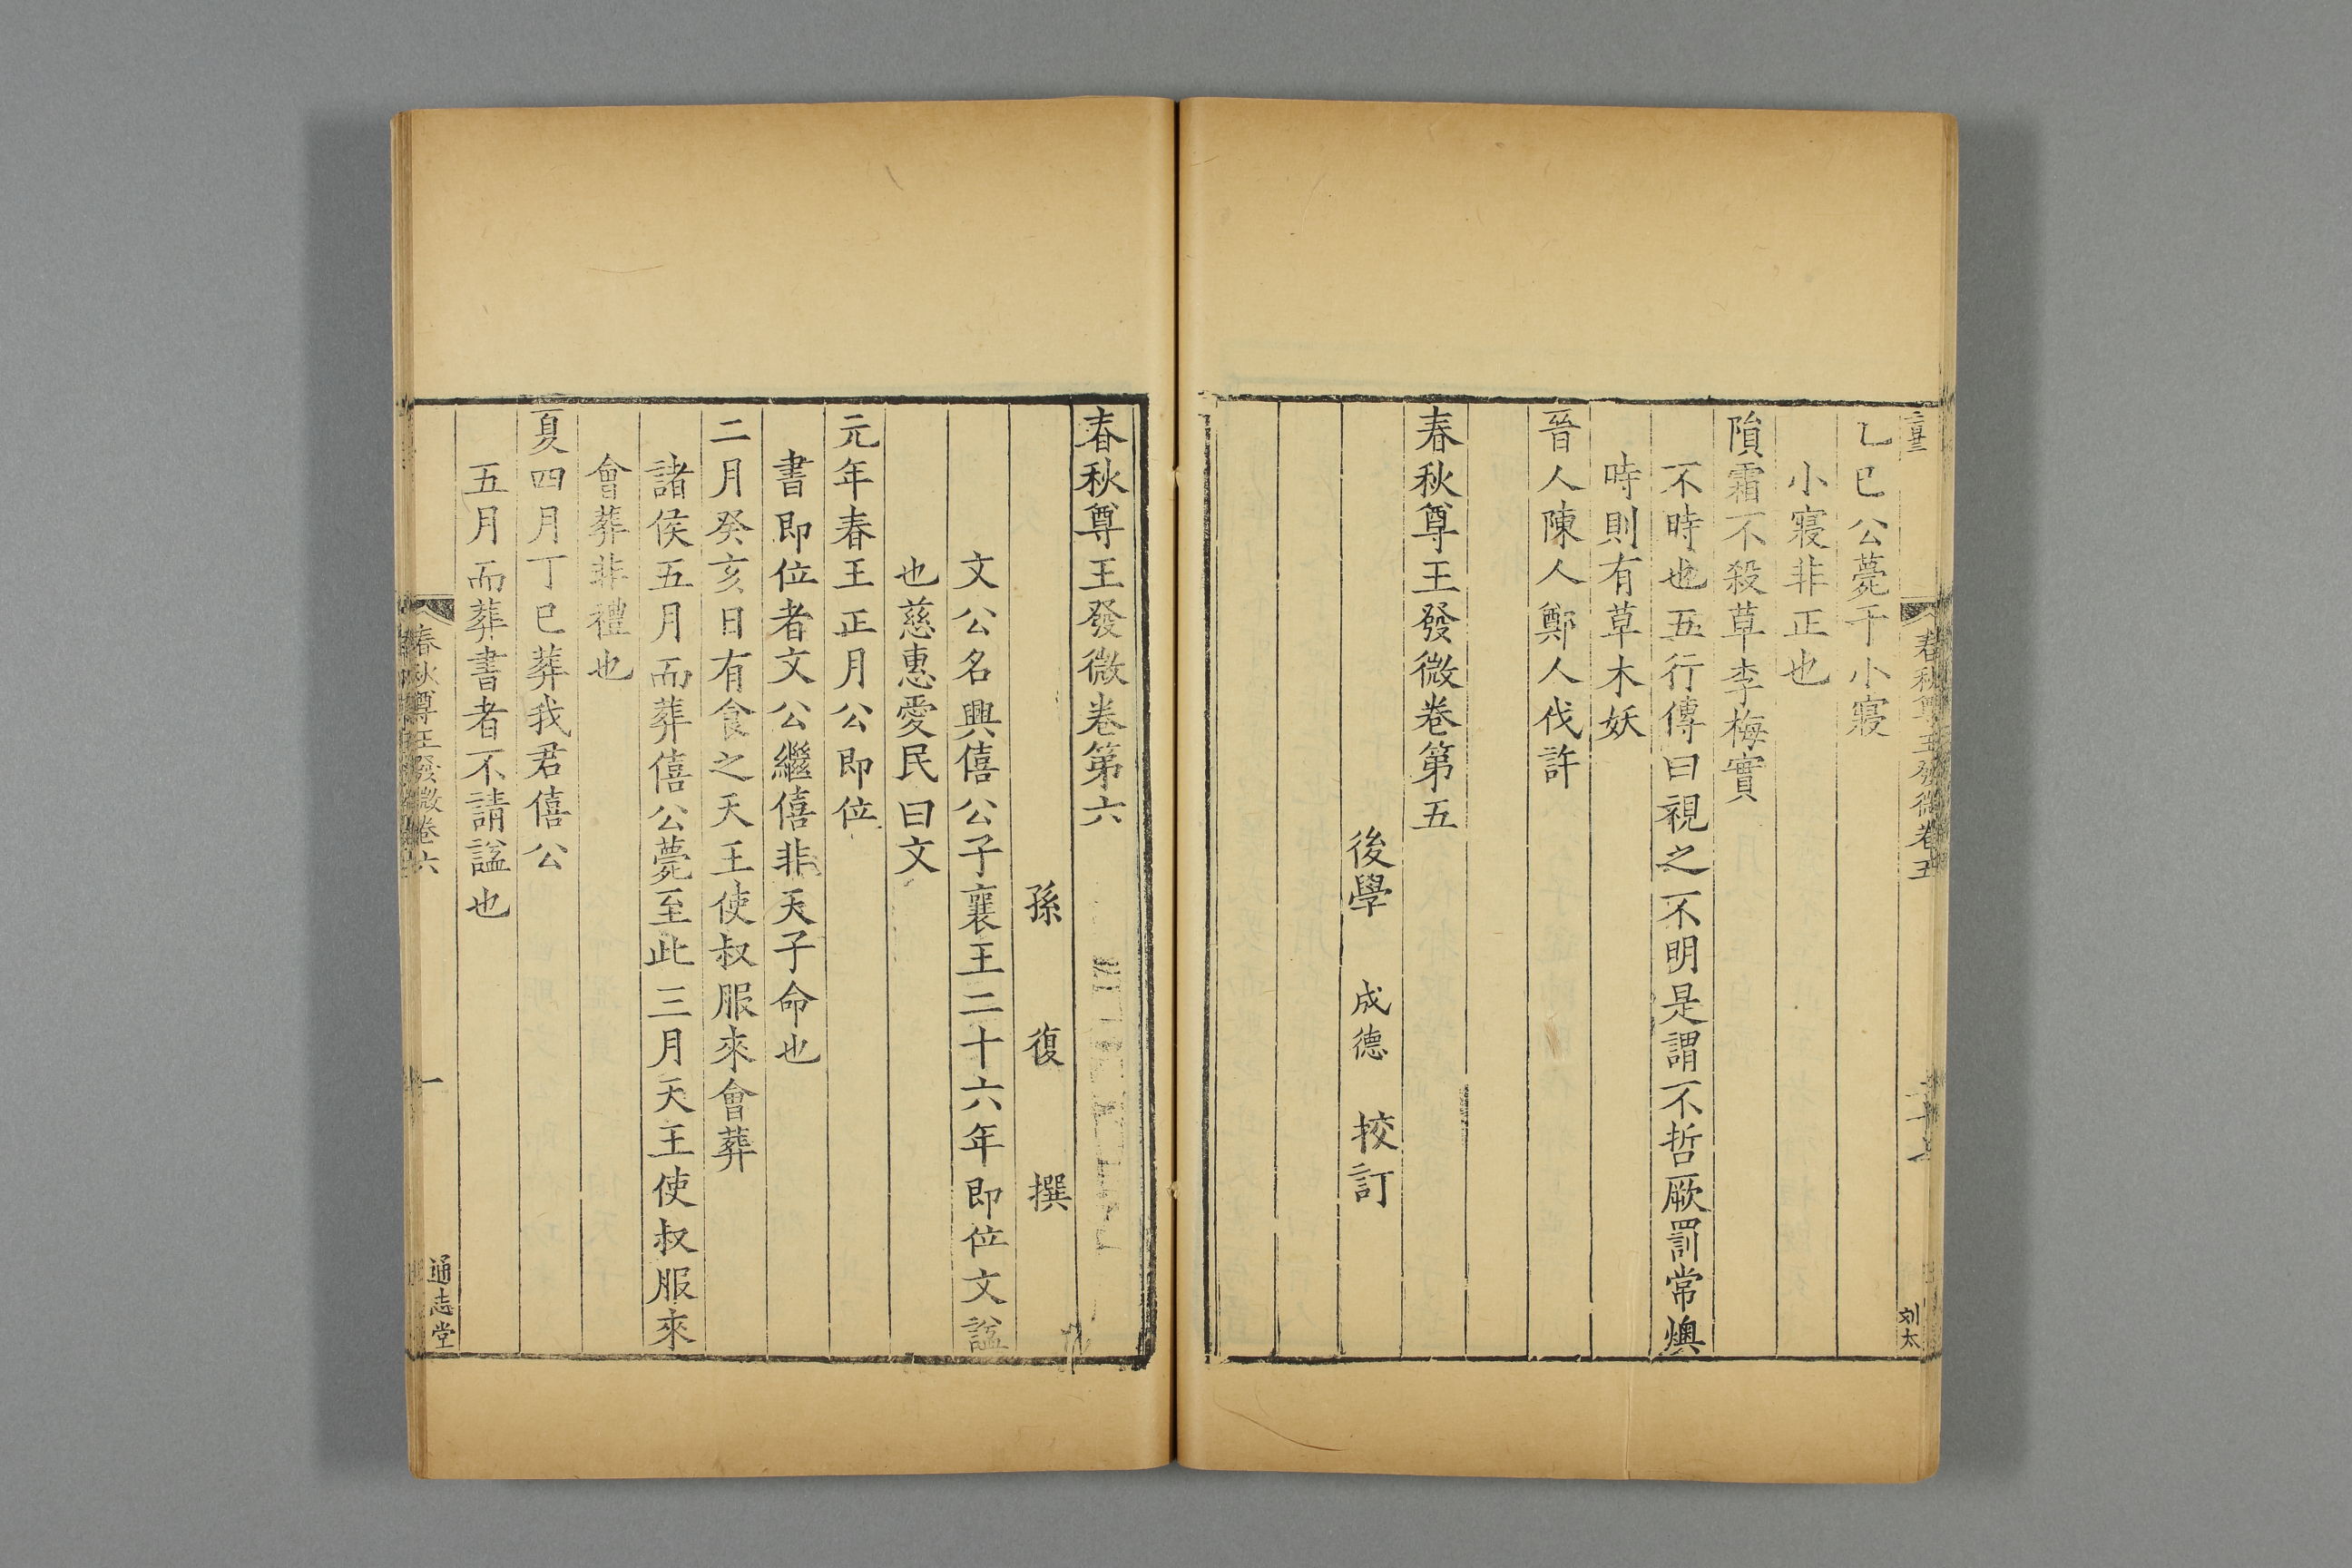 乙巳公薨于小寢
小寢非正也
隕霜不殺草李梅實
不時也五行傳曰視之不明是謂不哲厥罰常燠
時則有草木妖
晉人陳人鄭人伐許
春秋尊王發微卷第五
後學 成德 挍訂
春秋尊王發微卷五
刘太
春秋尊王發微卷第六
孫 復 撰
文公名興僖公子襄王二十六年即位文諡
也慈惠愛民曰文
元年春王正月公即位
書即位者文公繼僖非天子命也
二月癸亥日有食之天王使叔服來會葬
諸侯五月而葬僖公薨至此三月天王使叔服來
會葬非禮也
夏四月丁巳葬我君僖公
五月而葬書者不請諡也
春秋尊王發微卷六
一
通志堂